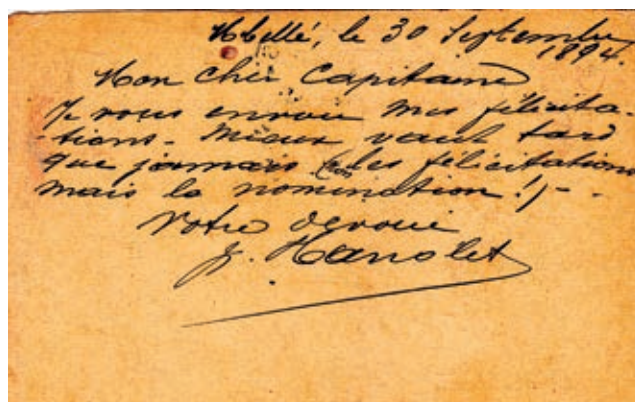 le 30 Septembre
1894.
Mon cher Capitaine
Je vous envoie mes félicita-
-tions - Mieux vaut tard
que jamais (non les félicitations
mais la nomination !) - -
Votre dévoué
Hanolet